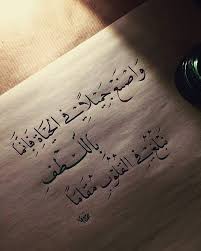 وَاصْنَعْ جَمِيلَاتٍ فِي الْحَيَاةِ فَإِنَّمَا
بِاللُّطْفِ
تَبْلُغُ فِي الْقُلُوبِ مَقَامَا